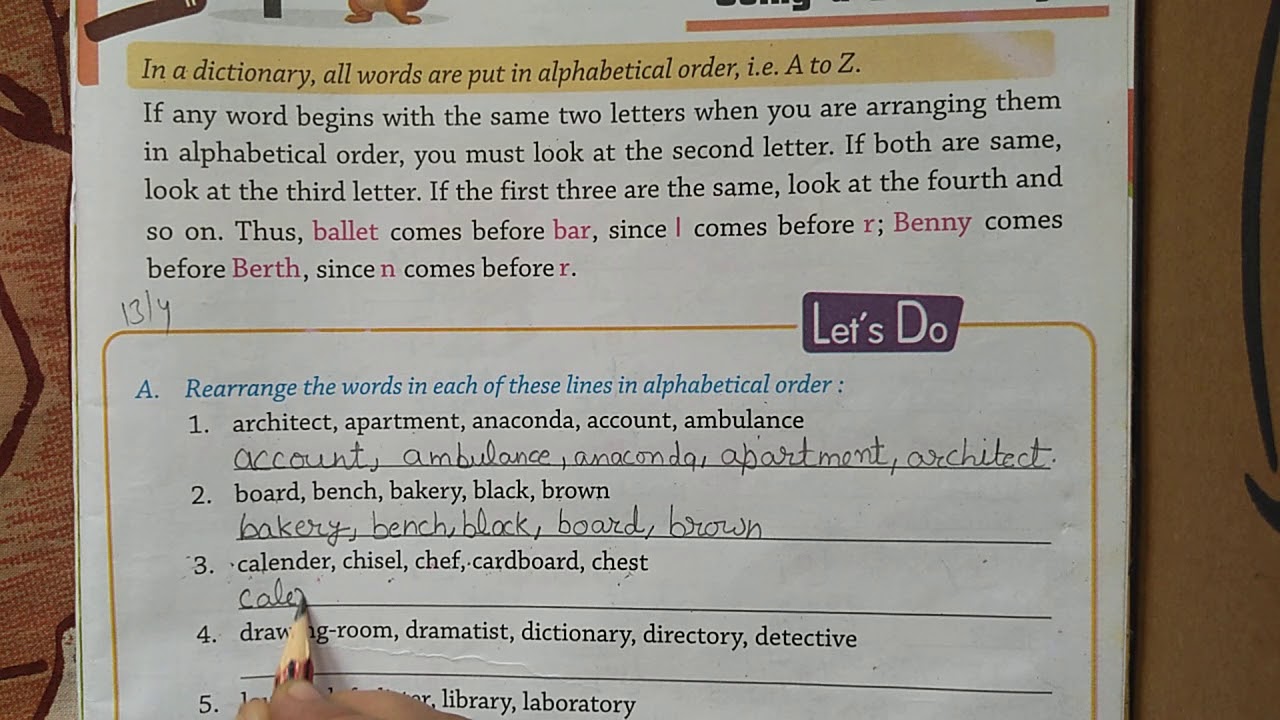 In a dictionary, all words are put in alphabetical order, i.e. A to Z.
If any word begins with the same two letters when you are arranging them
in alphabetical order, you must look at the second letter. If both are same,
look at the third letter. If the first three are the same, look at the fourth and
so on. Thus, ballet comes before bar, since l comes before r; Benny comes
before Berth, since n comes before r.
13/4
Let's Do
A. Rearrange the words in each of these lines in alphabetical order :
1. architect, apartment, anaconda, account, ambulance
account, ambulance, anaconda, apartment, architect.
2. board, bench, bakery, black, brown
bakery, bench, black, board, brown
3. calender, chisel, chef, cardboard, chest
cale
4. drawing-room, dramatist, dictionary, directory, detective
5. library, laboratory